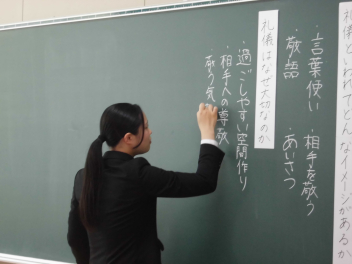 礼儀といわれてどんなイメージがあるか
・言葉使い ・相手を敬う
・敬語 ・あいさつ
礼儀はなぜ大切なのか
・過ごしやすい空間作り
・相手への尊敬
・敬う気